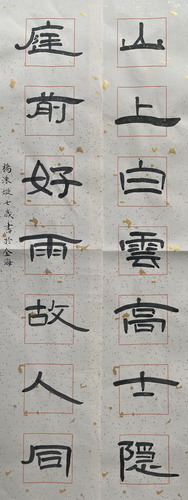 山上白雲高士隱
庭前好雨故人同
七歲書於金海